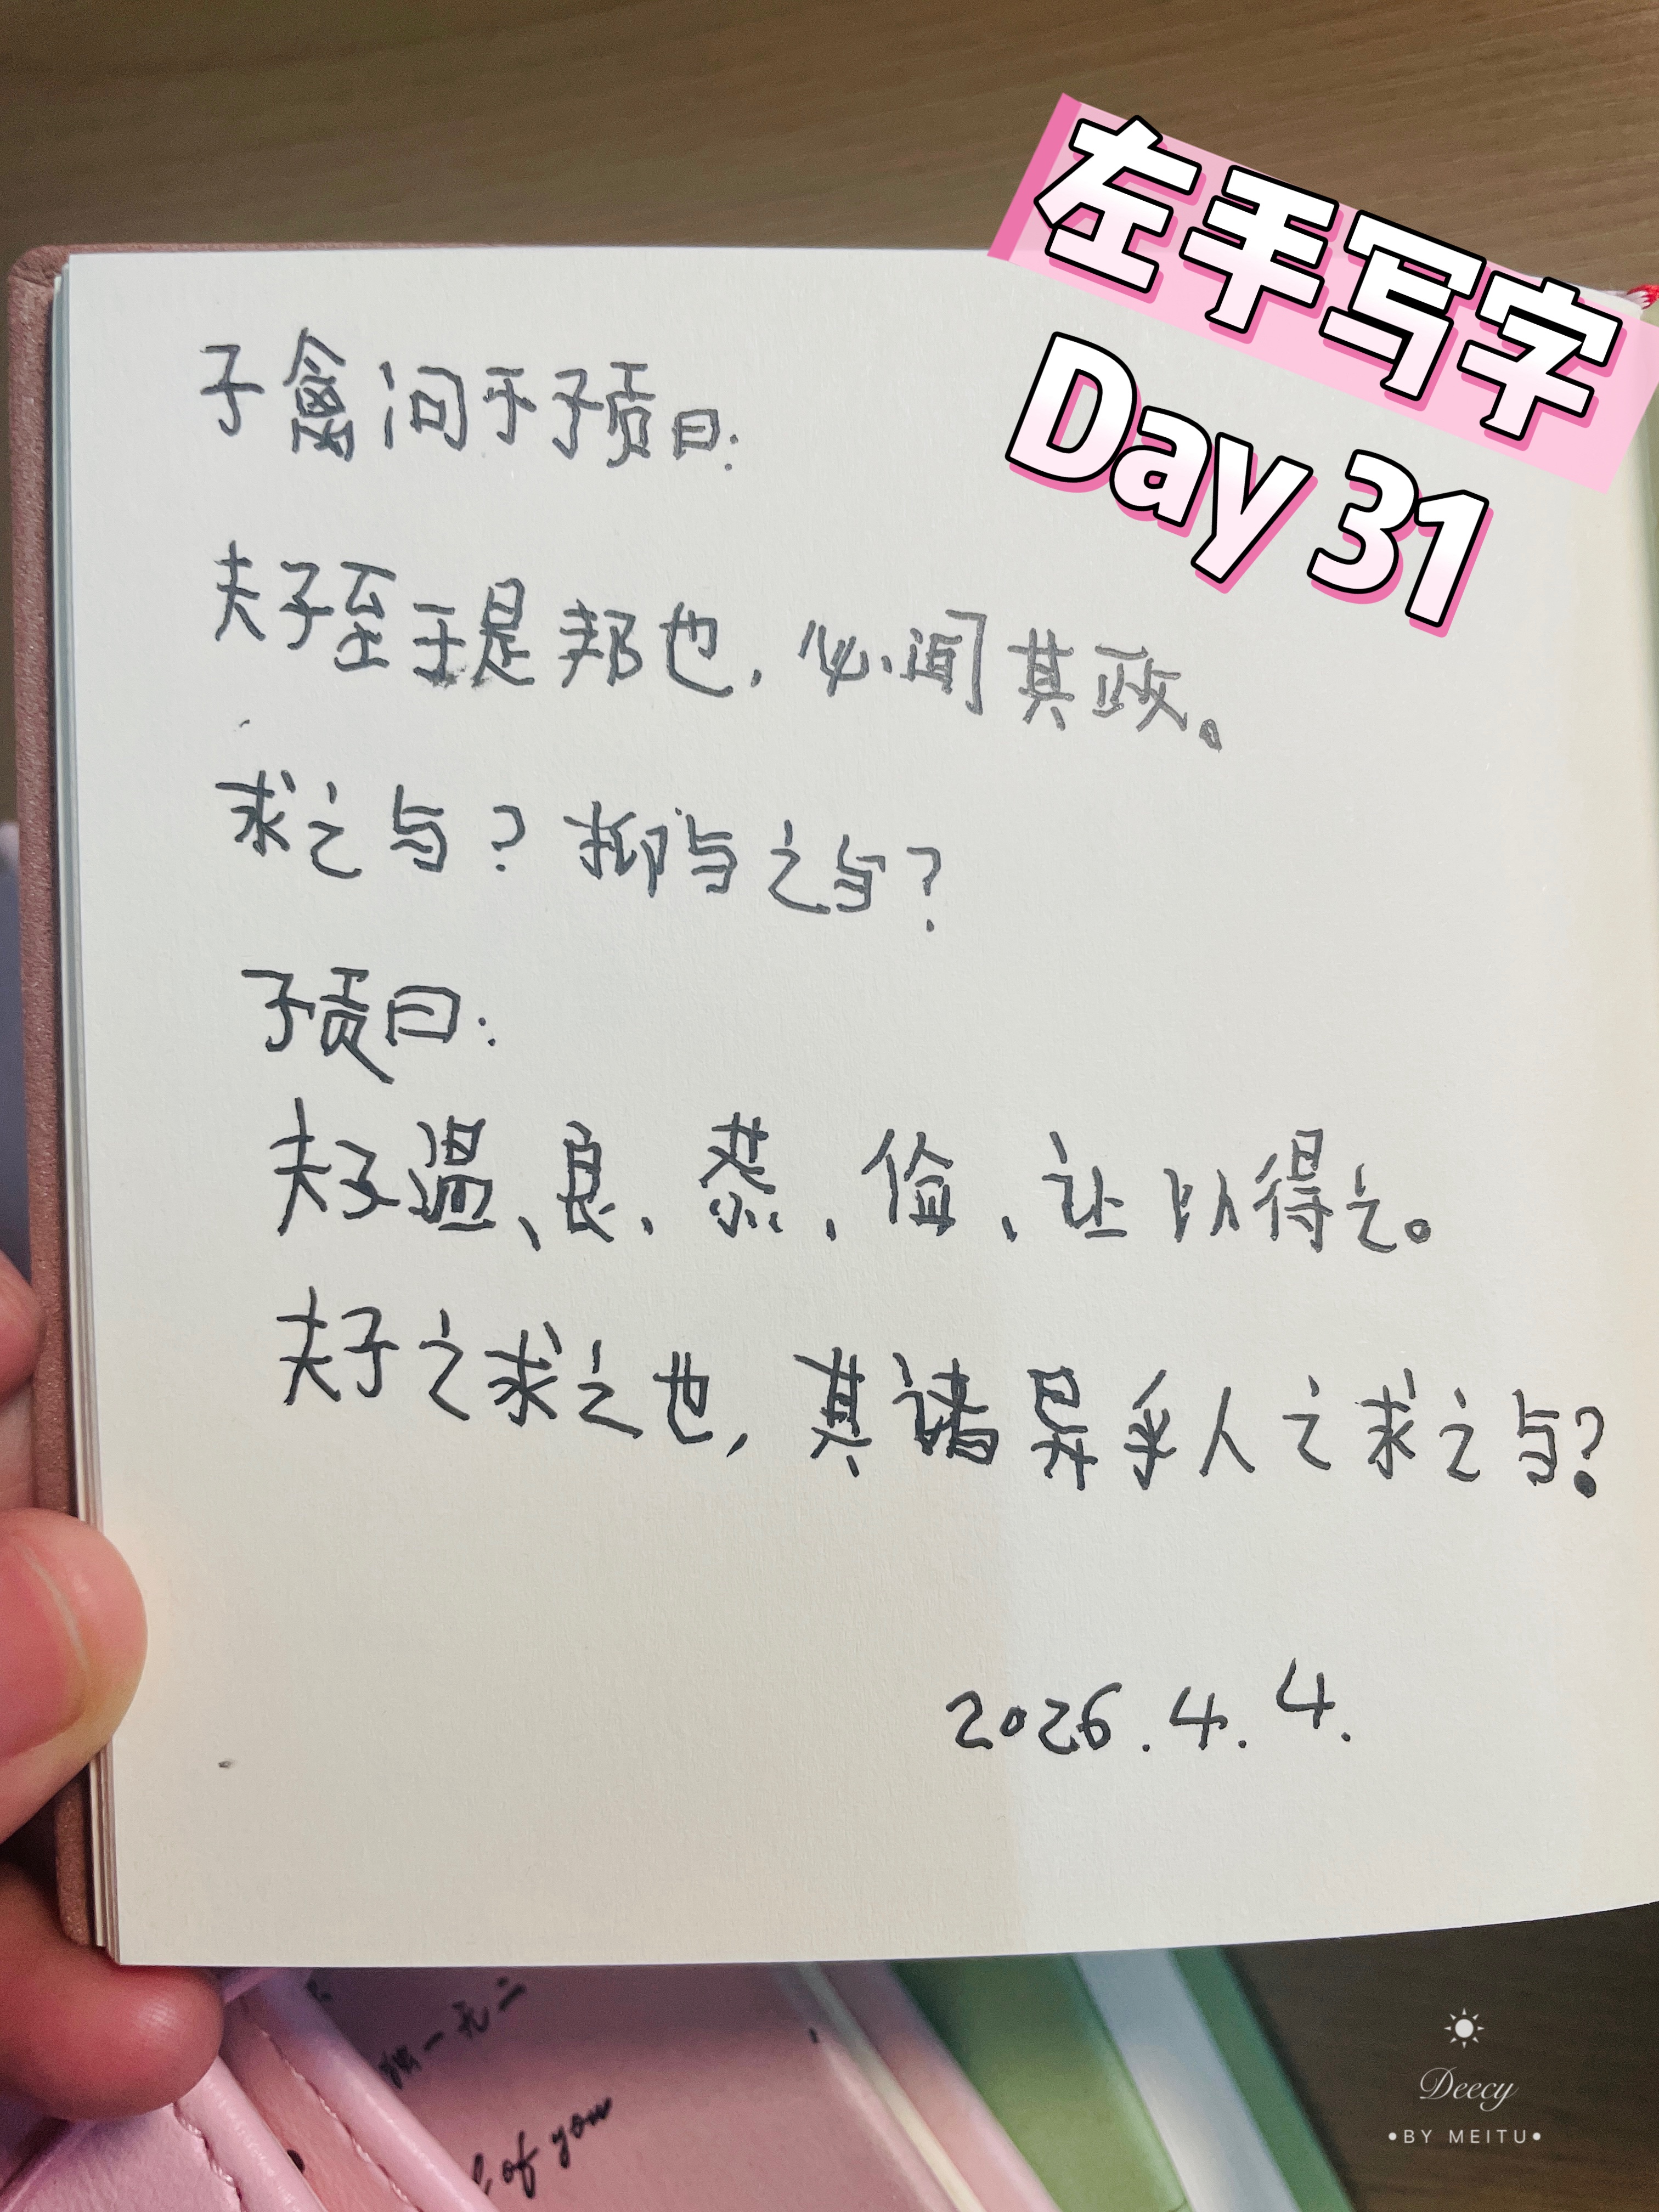 左手写字
Day 31
子禽问于子贡曰：
夫子至于是邦也，必闻其政。
求之与？抑与之与？
子贡曰：
夫子温、良、恭、俭、让以得之。
夫子之求之也，其诸异乎人之求之与？
2026.4.4.
一元二
of you
Deecy
•BY MEITU•